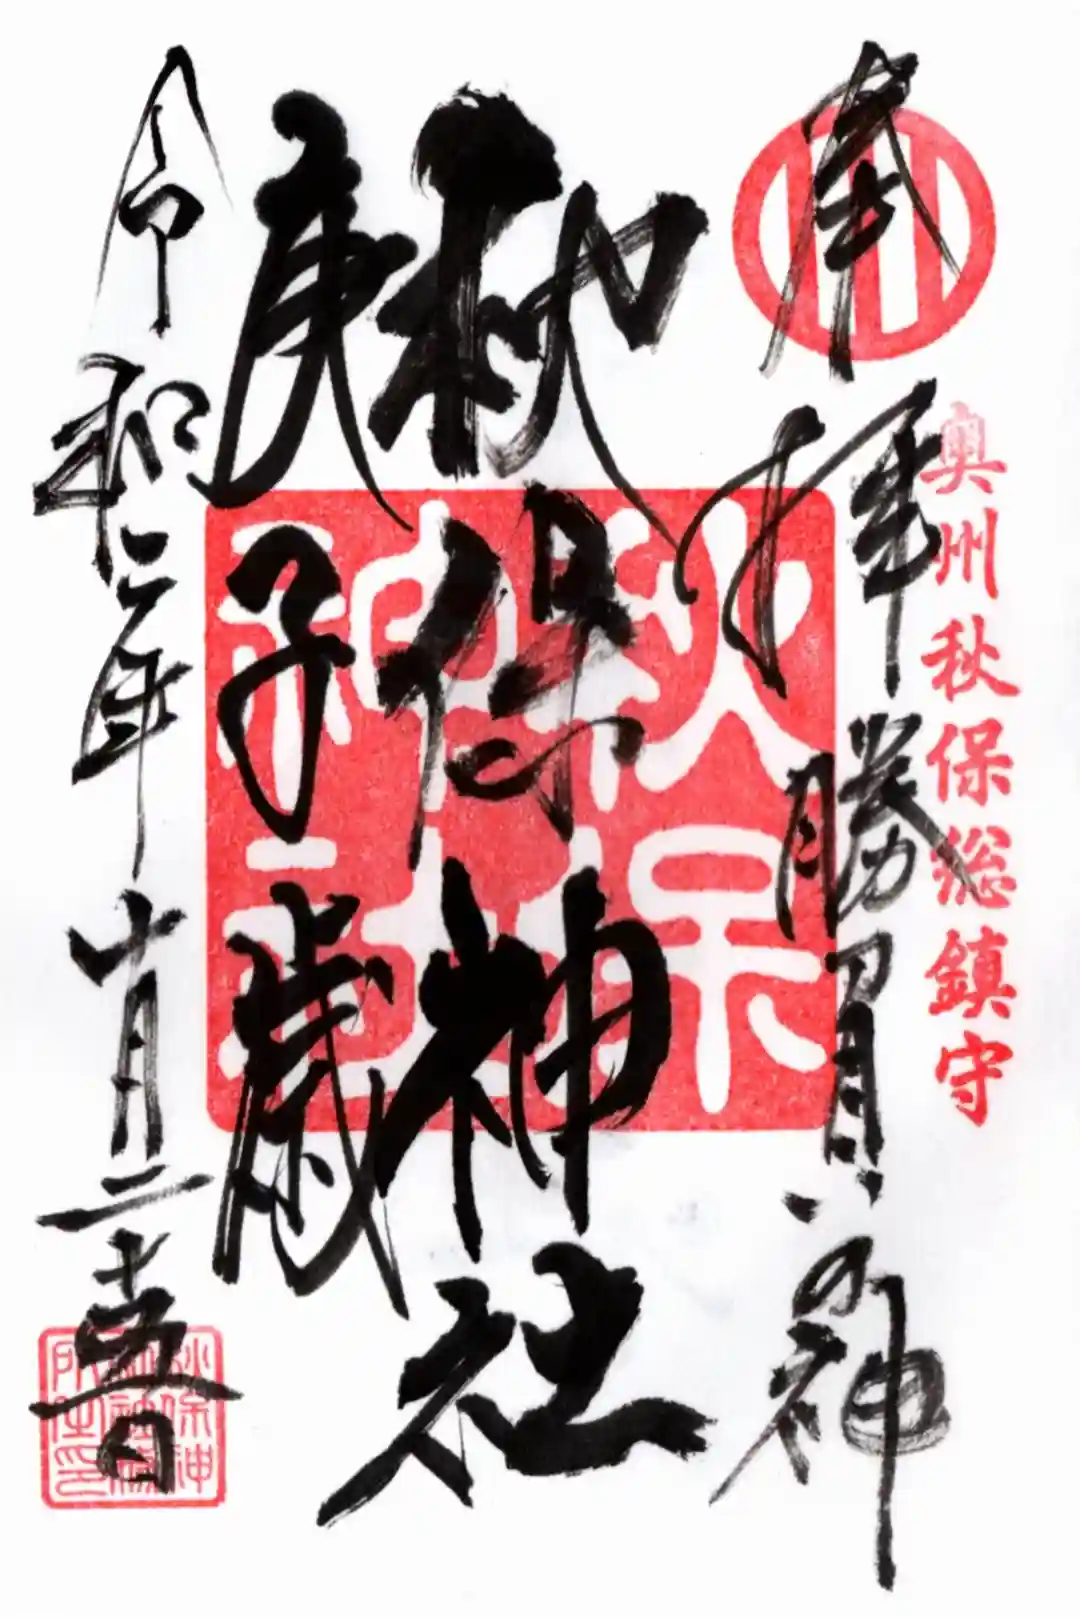 奉拝
勝負の神
奥州秋保総鎮守
秋保神社
庚子歳
令和二年十月二十五日
秋保
神社
秋保神
社社務
所之印